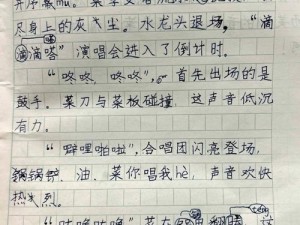 开序幕mù。菜
尽身上的灰尘。水龙头退场，“滴
滴嗒”演唱会进入了倒计时。
“咚咚，咚咚”，首先出场的是
鼓手。菜刀与菜板碰撞，这声音低沉
有力。
“噼哩啪啦”，合唱团闪亮登场，
锅锅铲、油、菜你唱我hè，声音欢快
热烈。
菜在 翻腾，这